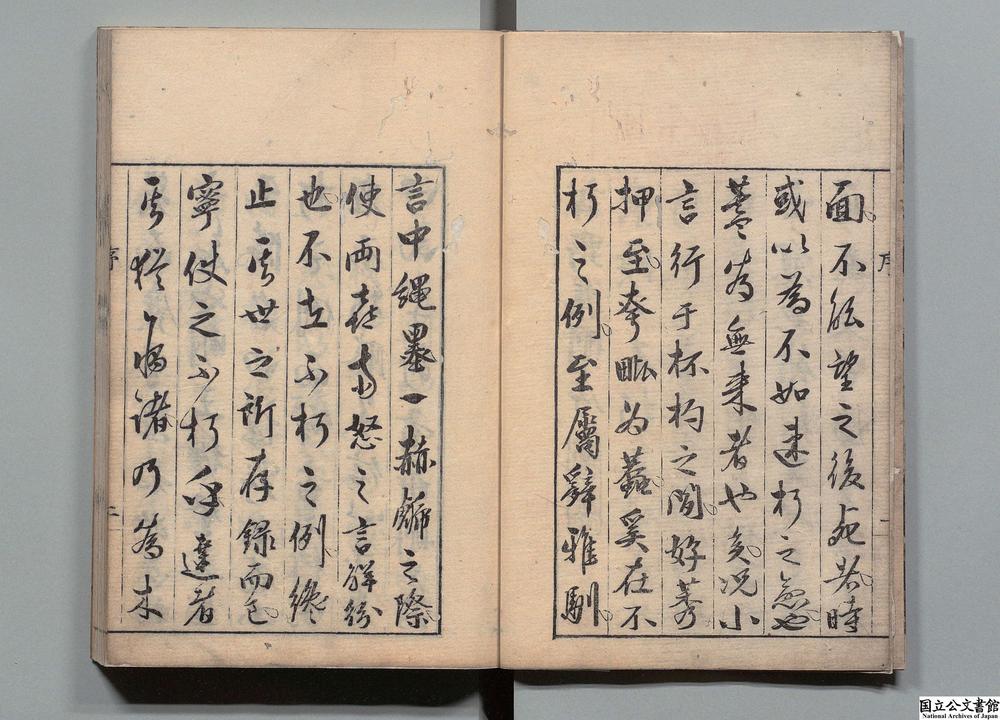 面不能望之後死者時
或以為不如速朽之愈也
蓋為無来者也矣况小
言行于杯杓之間好莠
押至夸毗为蠚奚在不
朽之例至屬辭雅馴
言中繩墨一赫蹏之際
使兩喜与怒之言解紛
也不在不朽之例纔
止其世之所存錄而已
寧使之不朽乎達者
其猶病諸乃為木
序
一
序
二
国立公文書館
National Archives of Japan